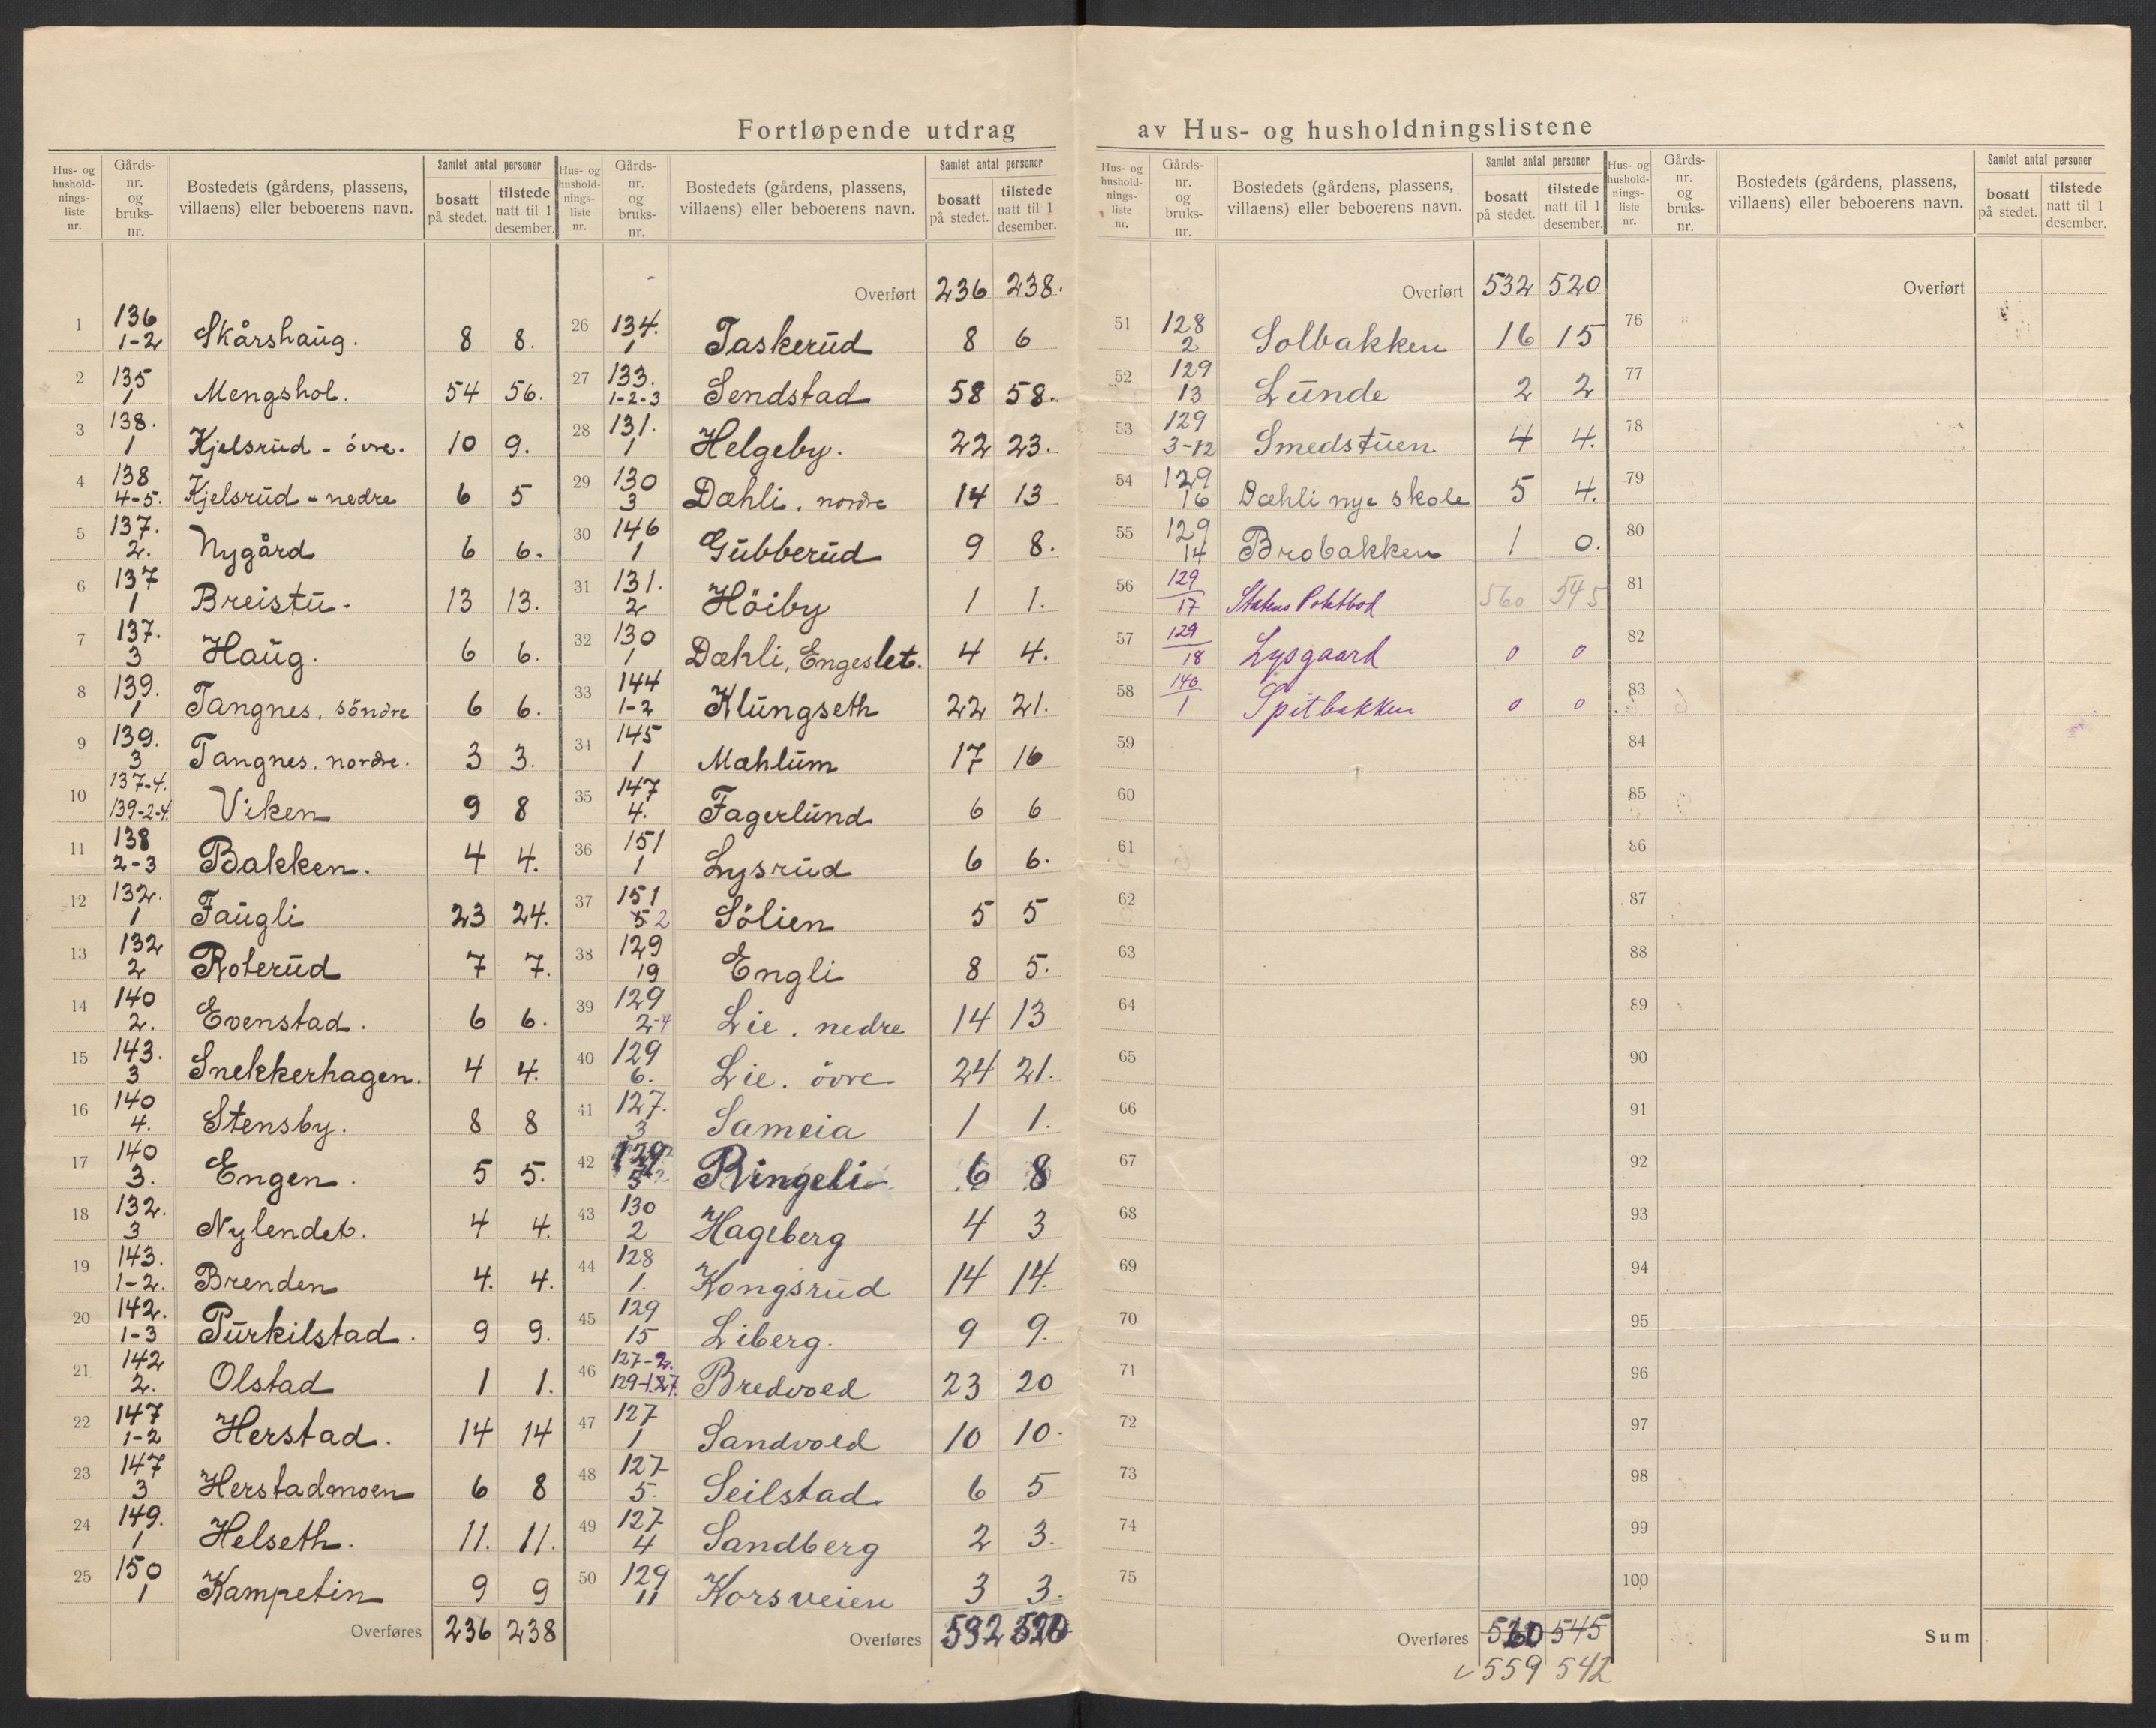 Fortløpende utdrag av Hus- og husholdningslistene
Hus- og hushold- nings- liste nr. | Gårds- nr. og bruks- nr. | Bostedets (gårdens, plassens, villaens) eller beboerens navn. | Samlet antal personer bosatt på stedet. | tilstede natt til 1 desember.
1 136 1-2 Skårshaug. 8 8.
2 135 1 Mengshol. 54 56.
3 138. 1 Kjelsrud - övre. 10 9.
4 138 4-5. Kjelsrud - nedre 6 5
5 137. 2. Nygård 6 6.
6 137 1 Breistu. 13 13.
7 137. 3 Haug. 6 6.
8 139. 1 Tangnes, söndre 6 6.
9 139. 3 Tangnes, nordre. 3 3.
10 137-4. 139-2-4. Viken 9 8
11 138 2-3 Bakken. 4 4.
12 132. 1 Faugli 23 24.
13 132 2 Roterud 7 7.
14 140 2. Evenstad. 6 6.
15 143. 3 Snekkerhagen. 4 4.
16 140 4. Stensby. 8 8
17 140 3. Engen. 5 5.
18 132. 3 Nylendet. 4 4.
19 143. 1-2. Brenden 4. 4.
20 142. 1-3 Purkilstad. 9 9.
21 142 2. Olstad 1 1.
22 147 1-2 Herstad. 14 14
23 147 3 Herstadmoen 6 8
24 149. 1 Helseth. 11. 11.
25 150 1 Kampetin 9 9
Overføres 236 238
Hus- og hushold- nings- liste nr. | Gårds- nr. og bruks- nr. | Bostedets (gårdens, plassens, villaens) eller beboerens navn. | Samlet antal personer bosatt på stedet. | tilstede natt til 1 desember.
Overført 236 238.
26 134. 1 Taskerud 8 6
27 133. 1-2-3 Sendstad 58 58.
28 131. 1 Helgeby. 22 23.
29 130 3 Dæhli, nordre 14 13
30 146 1 Gubberud 9 8.
31 131. 2 Höiby 1 1.
32 130 1 Dæhli, Engeslet. 4 4.
33 144 1-2 Klungseth 22 21.
34 145 1 Mæhlum 17 16
35 147 4. Fagerlund 6 6
36 151 1 Lysrud 6 6.
37 151 5 2 Sölien 5 5
38 129 19 Engli 8 5.
39 129 2-4 Lie. nedre 14 13
40 129 6. Lie. övre 24 21.
41 127. 3 Sameia 1 1.
42 129 5 Ringeli 6 8
43 130 2 Hageberg 4 3
44 128 1. Kongsrud 14 14.
45 129 15 Liberg. 9 9.
46 127-2. 129-1.27. Bredvold 23 20
47 127 1 Sandvold 10 10.
48 127 5. Seilstad 6 5
49 127 4 Sandberg 2 3.
50 129 11 Korsveien 3 3.
Overføres 532 520
Hus- og hushold- nings- liste nr. | Gårds- nr. og bruks- nr. | Bostedets (gårdens, plassens, villaens) eller beboerens navn. | Samlet antal personer bosatt på stedet. | tilstede natt til 1 desember.
Overført 532 520
51 128 2 Solbakken 16 15
52 129 13 Lunde 2 2
53 129 3-12 Smedstuen 4 4.
54 129 16 Dæhli nye skole 5 4.
55 129 14 Brobakken 1 0.
56 129 17 Statens Poktbod 560 545
57 129 18 Lysgaard 0 0
58 140 1 Spitbakken 0 0
59
60
61
62
63
64
65
66
67
68
69
70
71
72
73
74
75
Overføres 560 545
559 542
Hus- og hushold- nings- liste nr. | Gårds- nr. og bruks- nr. | Bostedets (gårdens, plassens, villaens) eller beboerens navn. | Samlet antal personer bosatt på stedet. | tilstede natt til 1 desember.
Overført
76
77
78
79
80
81
82
83
84
85
86
87
88
89
90
91
92
93
94
95
96
97
98
99
100
Sum